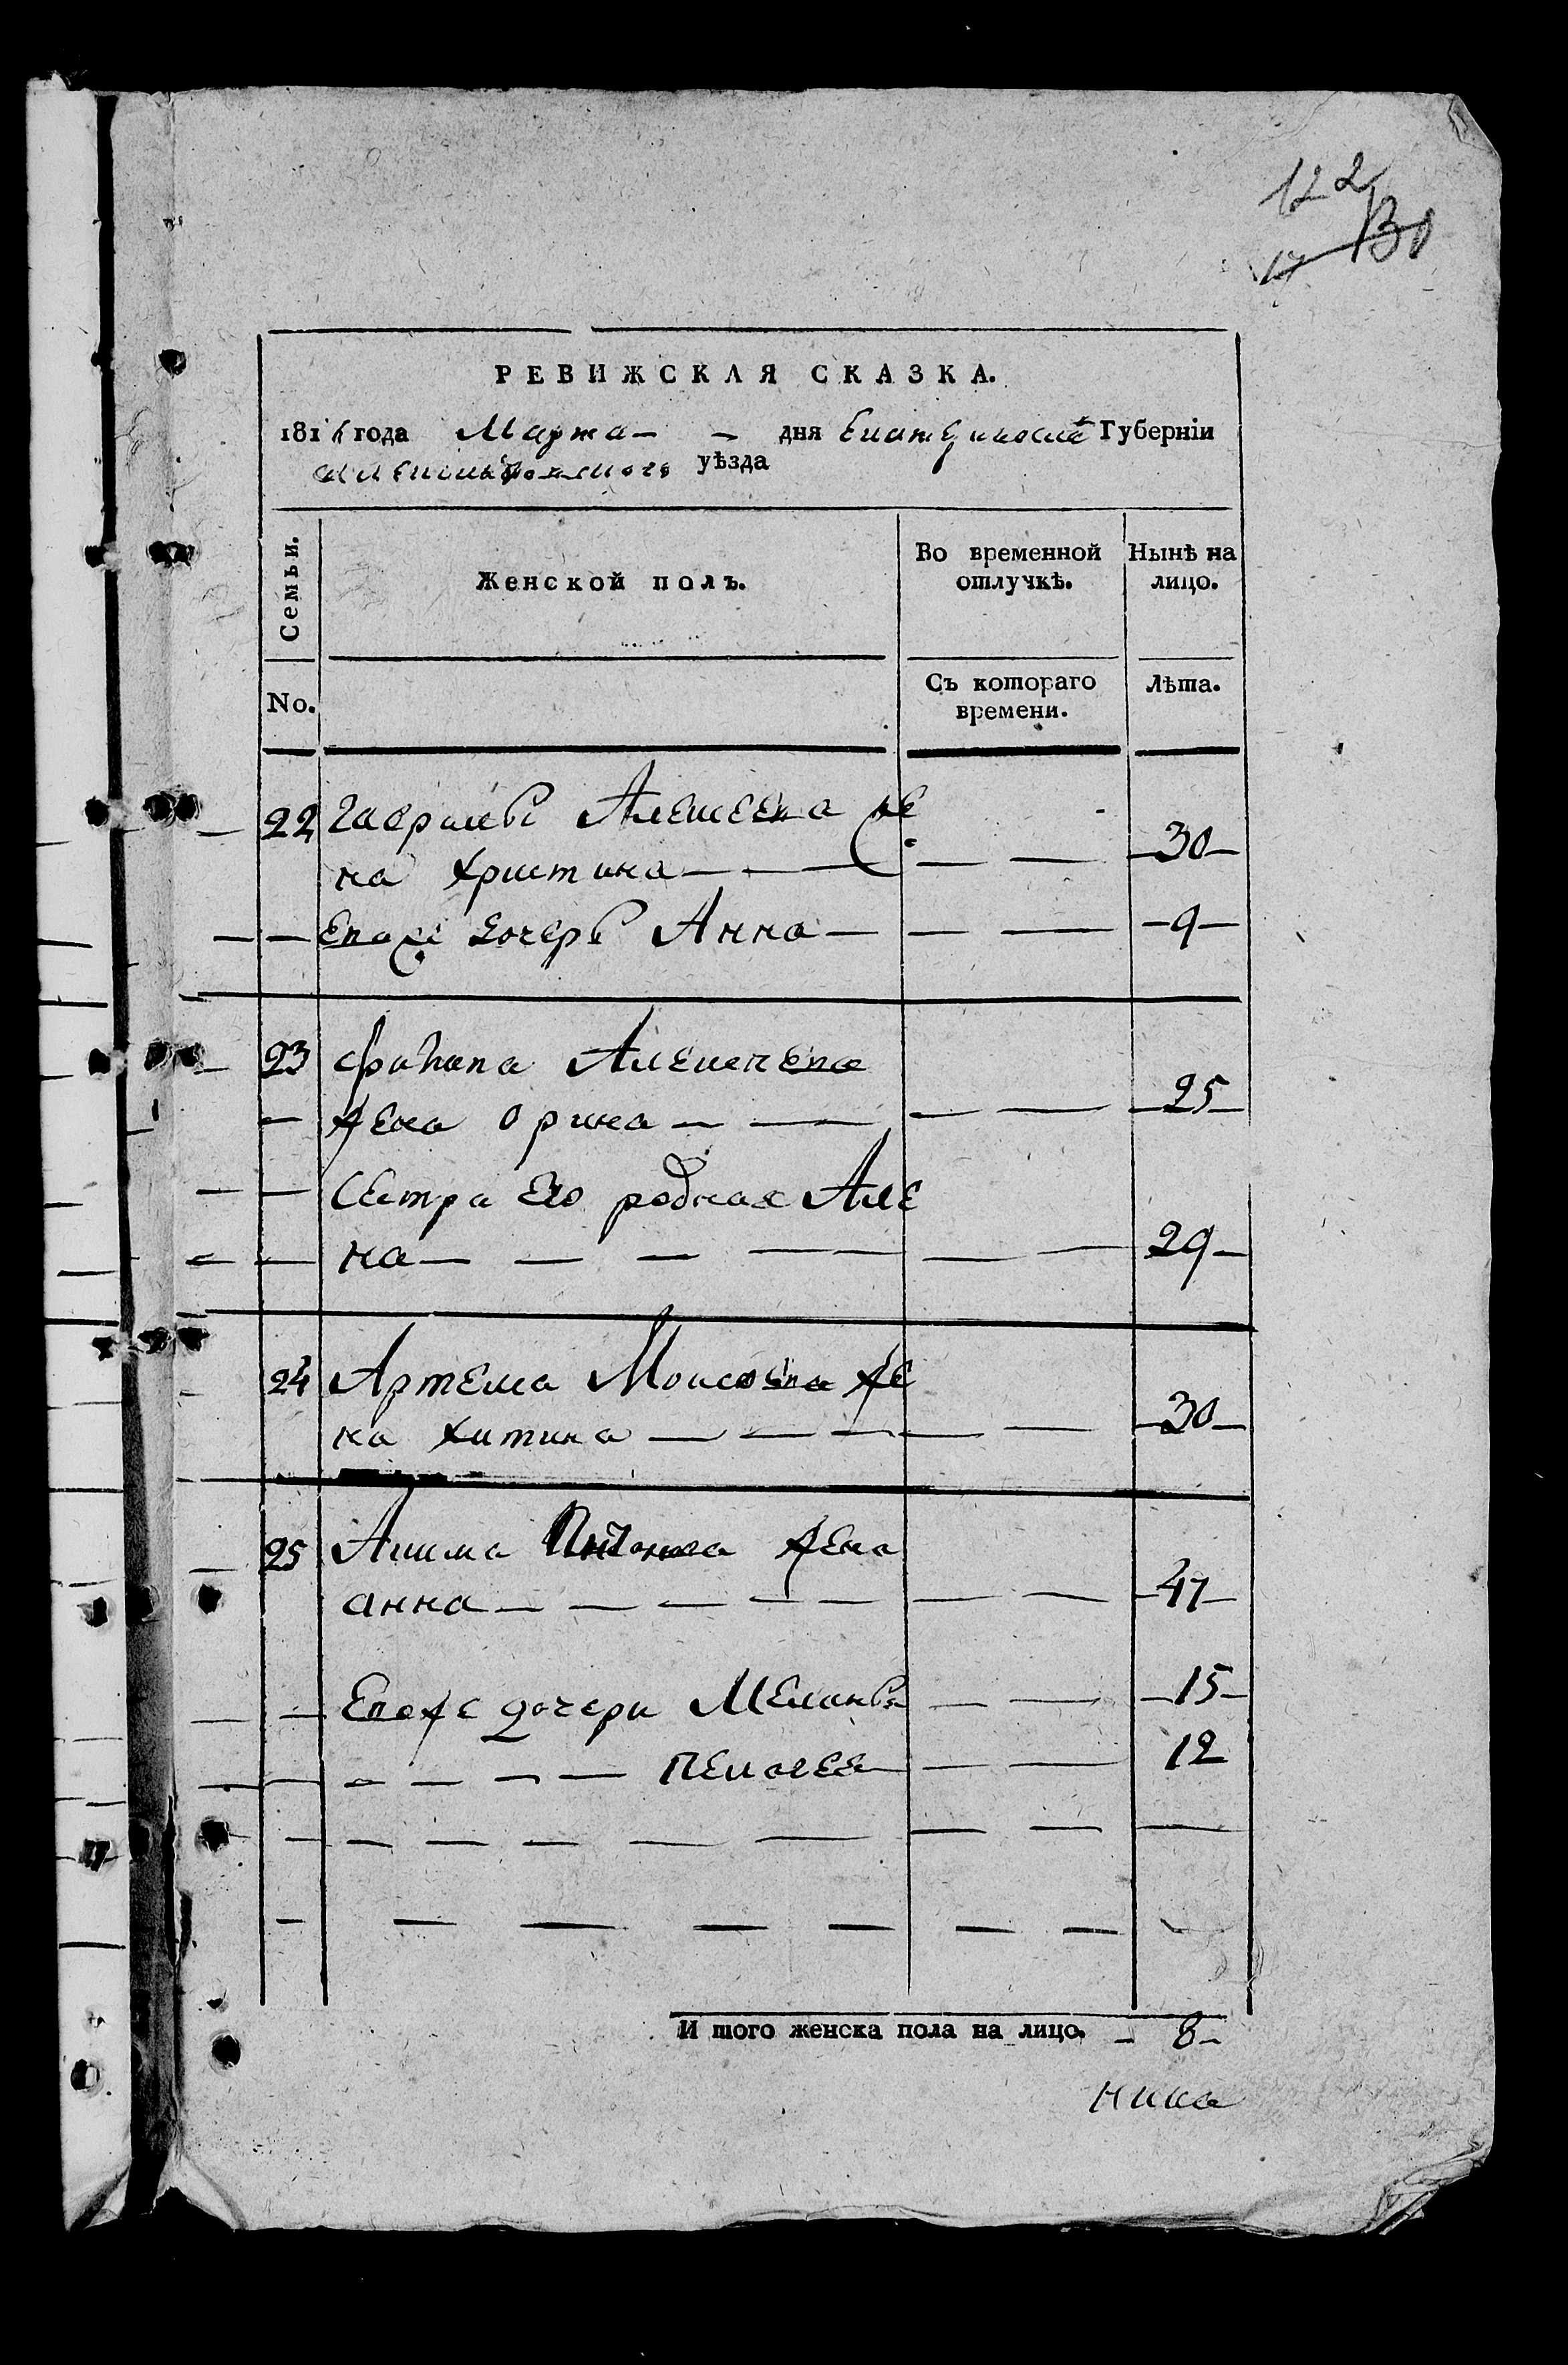 122
130
17
РЕВИЖСКАЯ СКАЗКА.
1816 года Марта — — дня Екатериносла Губерніи
Александровского уѣзда
Семьи.
Женской полъ.
Во временной отлучкѣ.
Нынѣ на лицо.
No.
Съ котораго времени.
Лѣта.
22 Гаврилы Алексеева же
на Христина — — — — 30 —
— — Евоже дочерь Анна — — — — 9 —
23 Филипа Алексеева
— жена Орина — — — — — 25 —
— — Сестра Его родная Але
— — на — — — — — — — 29 —
24 Артема Моисеева же
на Хитина — — — — — — 30 —
25 Акима жена
анна — — — — — — — — 47 —
— — Евоже дочери Меланья — — — 15 —
— — — — — — Пелагея — — — 12
И того женска пола на лицо. — 8 —